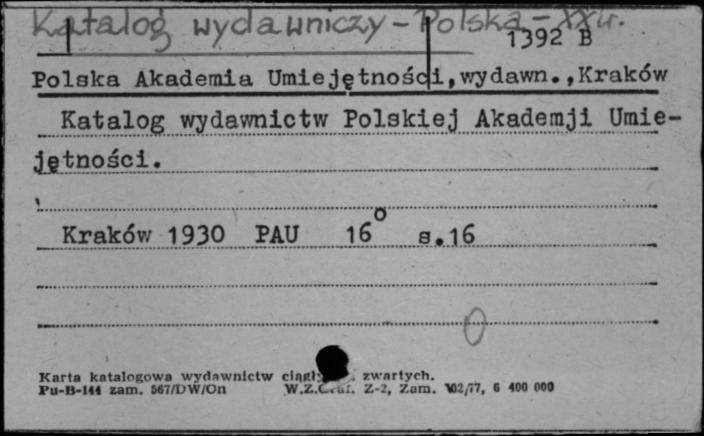 Katalog wydawniczy - Polska - XX w.
1392 B
Polska Akademia Umiejętności, wydawn., Kraków
Katalog wydawnictw Polskiej Akademji Umie-
jętności.
Kraków 1930 PAU 16° s.16
0
Karta katalogowa wydawnictw zwartych.
Pu-B-144 zam. 567/DW/On W.Z.Graf. Z-2, Zam. 102/77, 6 400 000